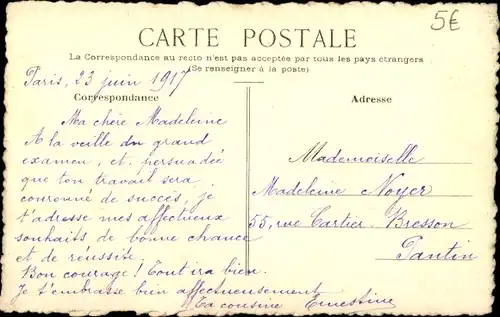 5€
CARTE POSTALE
La Correspondance au recto n'est pas acceptée par tous les pays étrangers
(Se renseigner à la poste)
Paris, 23 juin 1917
Correspondance
Ma chère Madeleine
A la veille du grand
examen, et, persuadée
que ton travail sera
couronné de succès, je
t'adresse mes affectueux
souhaits de bonne chance
et de réussite.
Bon courage ! Tout ira bien.
Je t'embrasse bien affectueusement
Ta cousine Ernestine
Adresse
Mademoiselle
Madeleine Noyer
55, rue Cartier-Bresson
Pantin